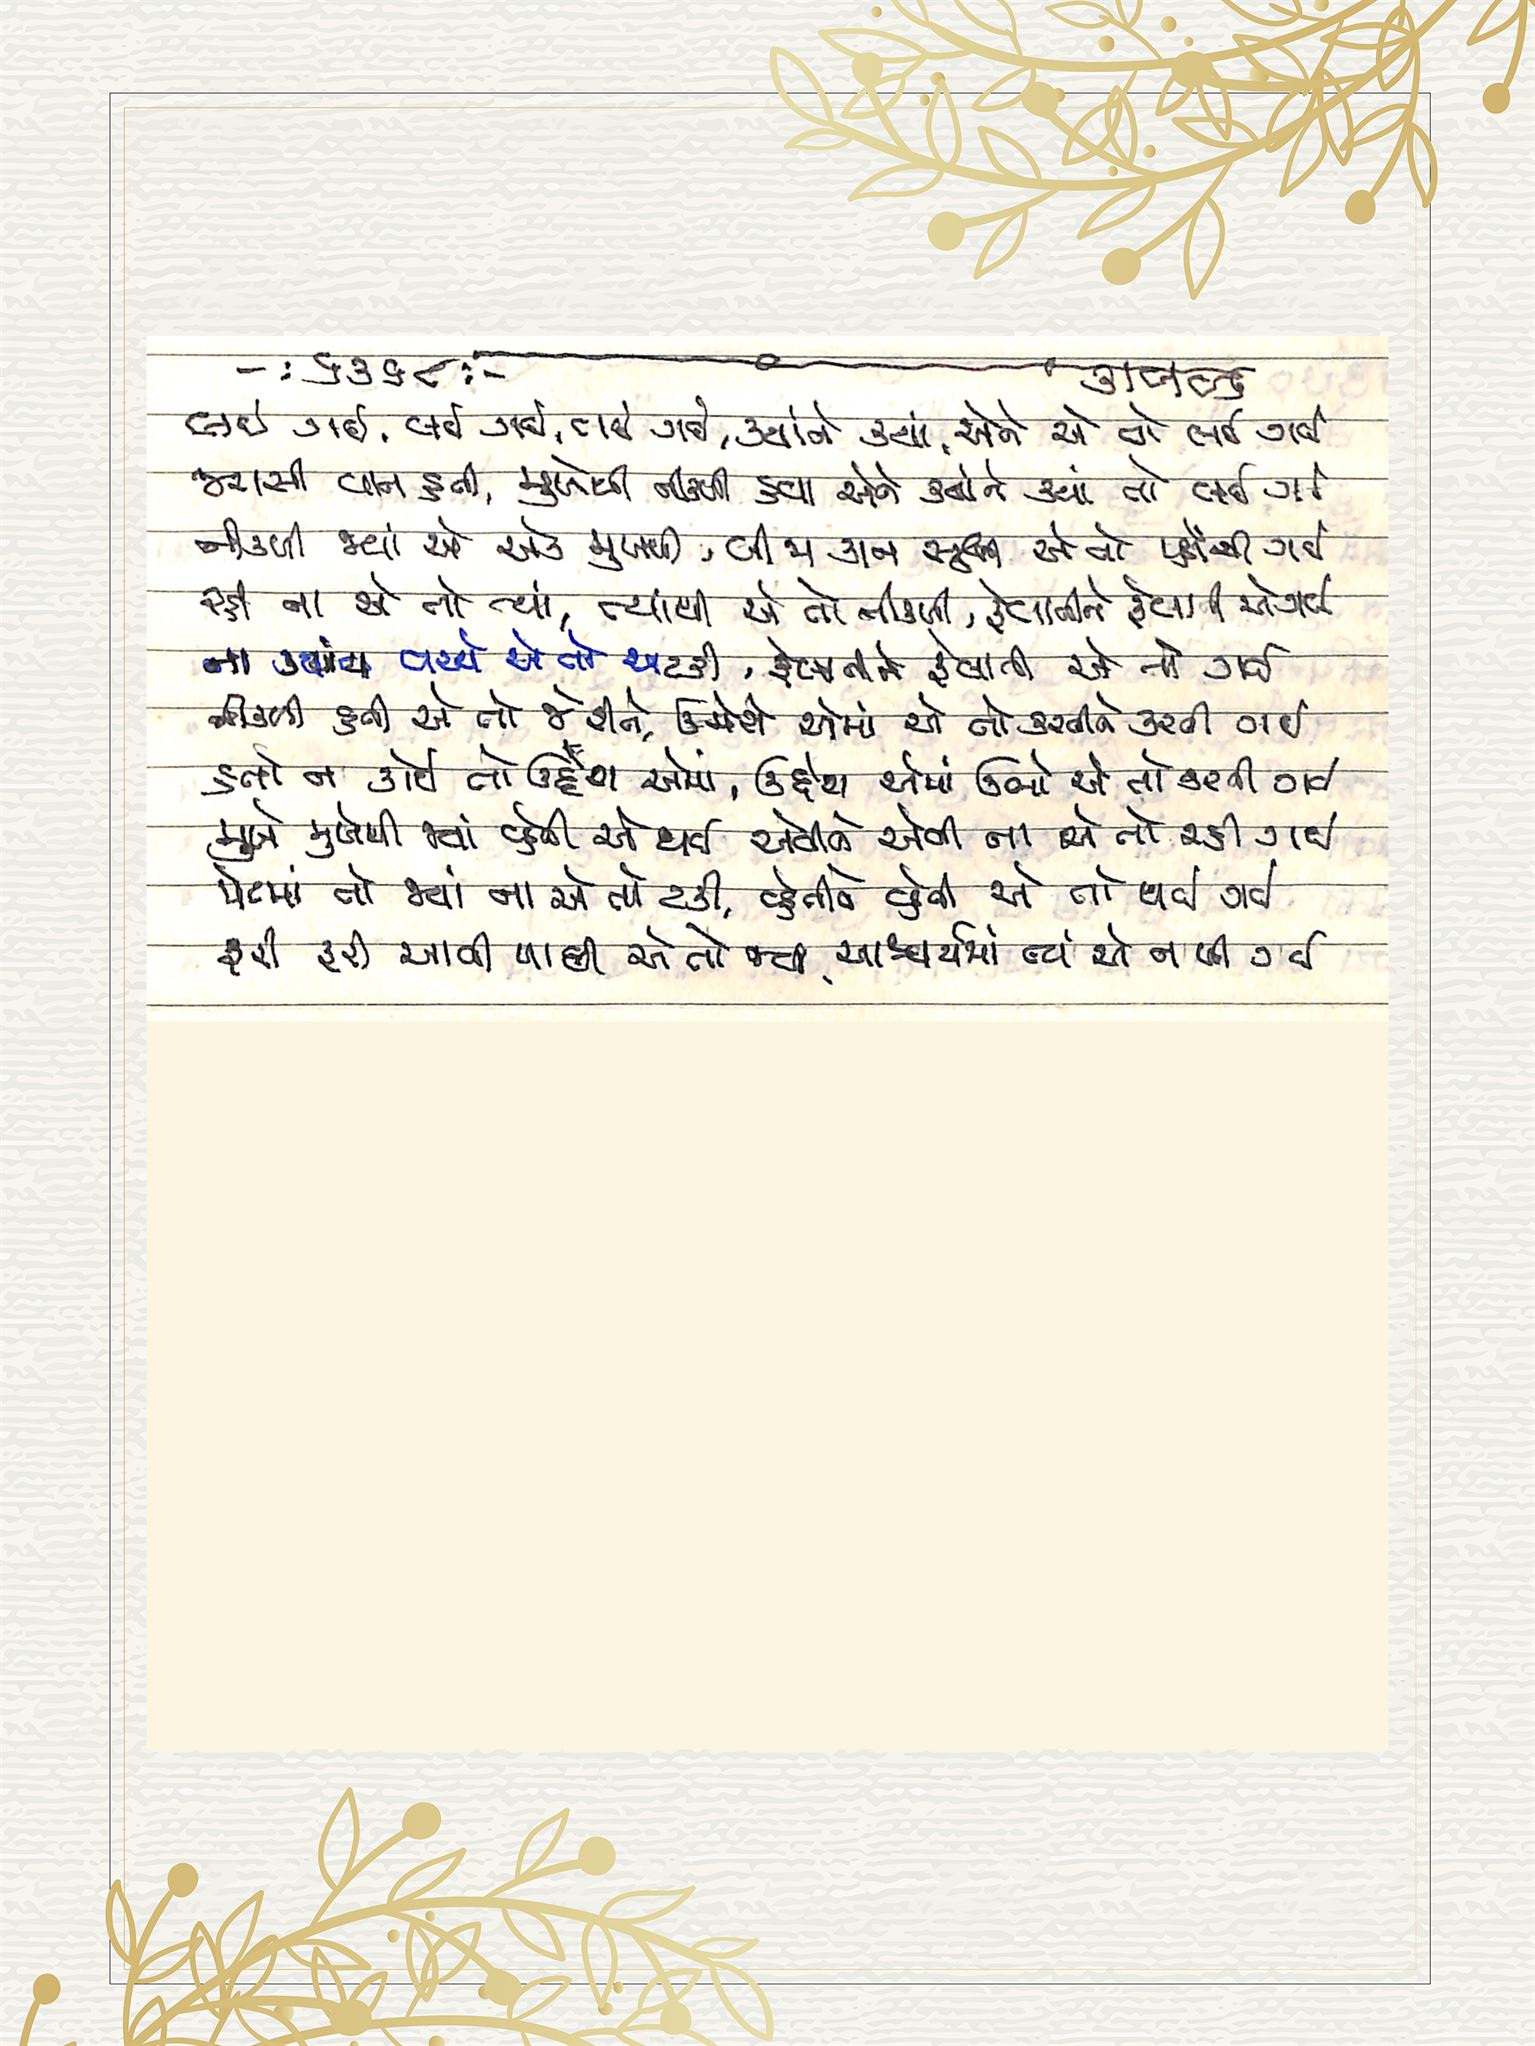 -: ૬૩૬૮ :-
લઈ ગઈ, લઈ ગઈ, લઈ ગઈ, ક્યાંને ક્યાં, એને એ તો લઈ ગઈ
જરાસી વાત હતી, મુખેથી નીકળી હવા એને ક્યાંને ક્યાં તો લઈ ગઈ
નીકળી જ્યાં એ એક મુખથી, બીજા કાન સુધી એ તો પહોંચી ગઈ
રહી ના એ તો ત્યાં, ત્યાંથી એ તો નીકળી, ફેલાતીને ફેલાતી એ ગઈ
ના ક્યાંય વચ્ચે એ તો અટકી, ફેલાતીને ફેલાતી એ તો ગઈ
નીકળી હતી એ તો જે હેતુને, ઉમેરો એમાં એ તો કરતીને કરતી ગઈ
હતો ન કોઈ તો ઉદ્દેશ એમાં, ઉદ્દેશ એમાં ઉભો એ તો કરતી ગઈ
મુખે મુખેથી જ્યાં વ્હેતી એ થઈ એવીને એવી ના એ તો રહી ગઈ
પેટમાં તો જ્યાં ના એ તો ટકી, વ્હેતીને વ્હેતી એ તો થઈ ગઈ
ફરી ફરી આવી પાછી એ તો જ્યાં, આશ્ચર્યમાં ત્યાં એ નાખી ગઈ